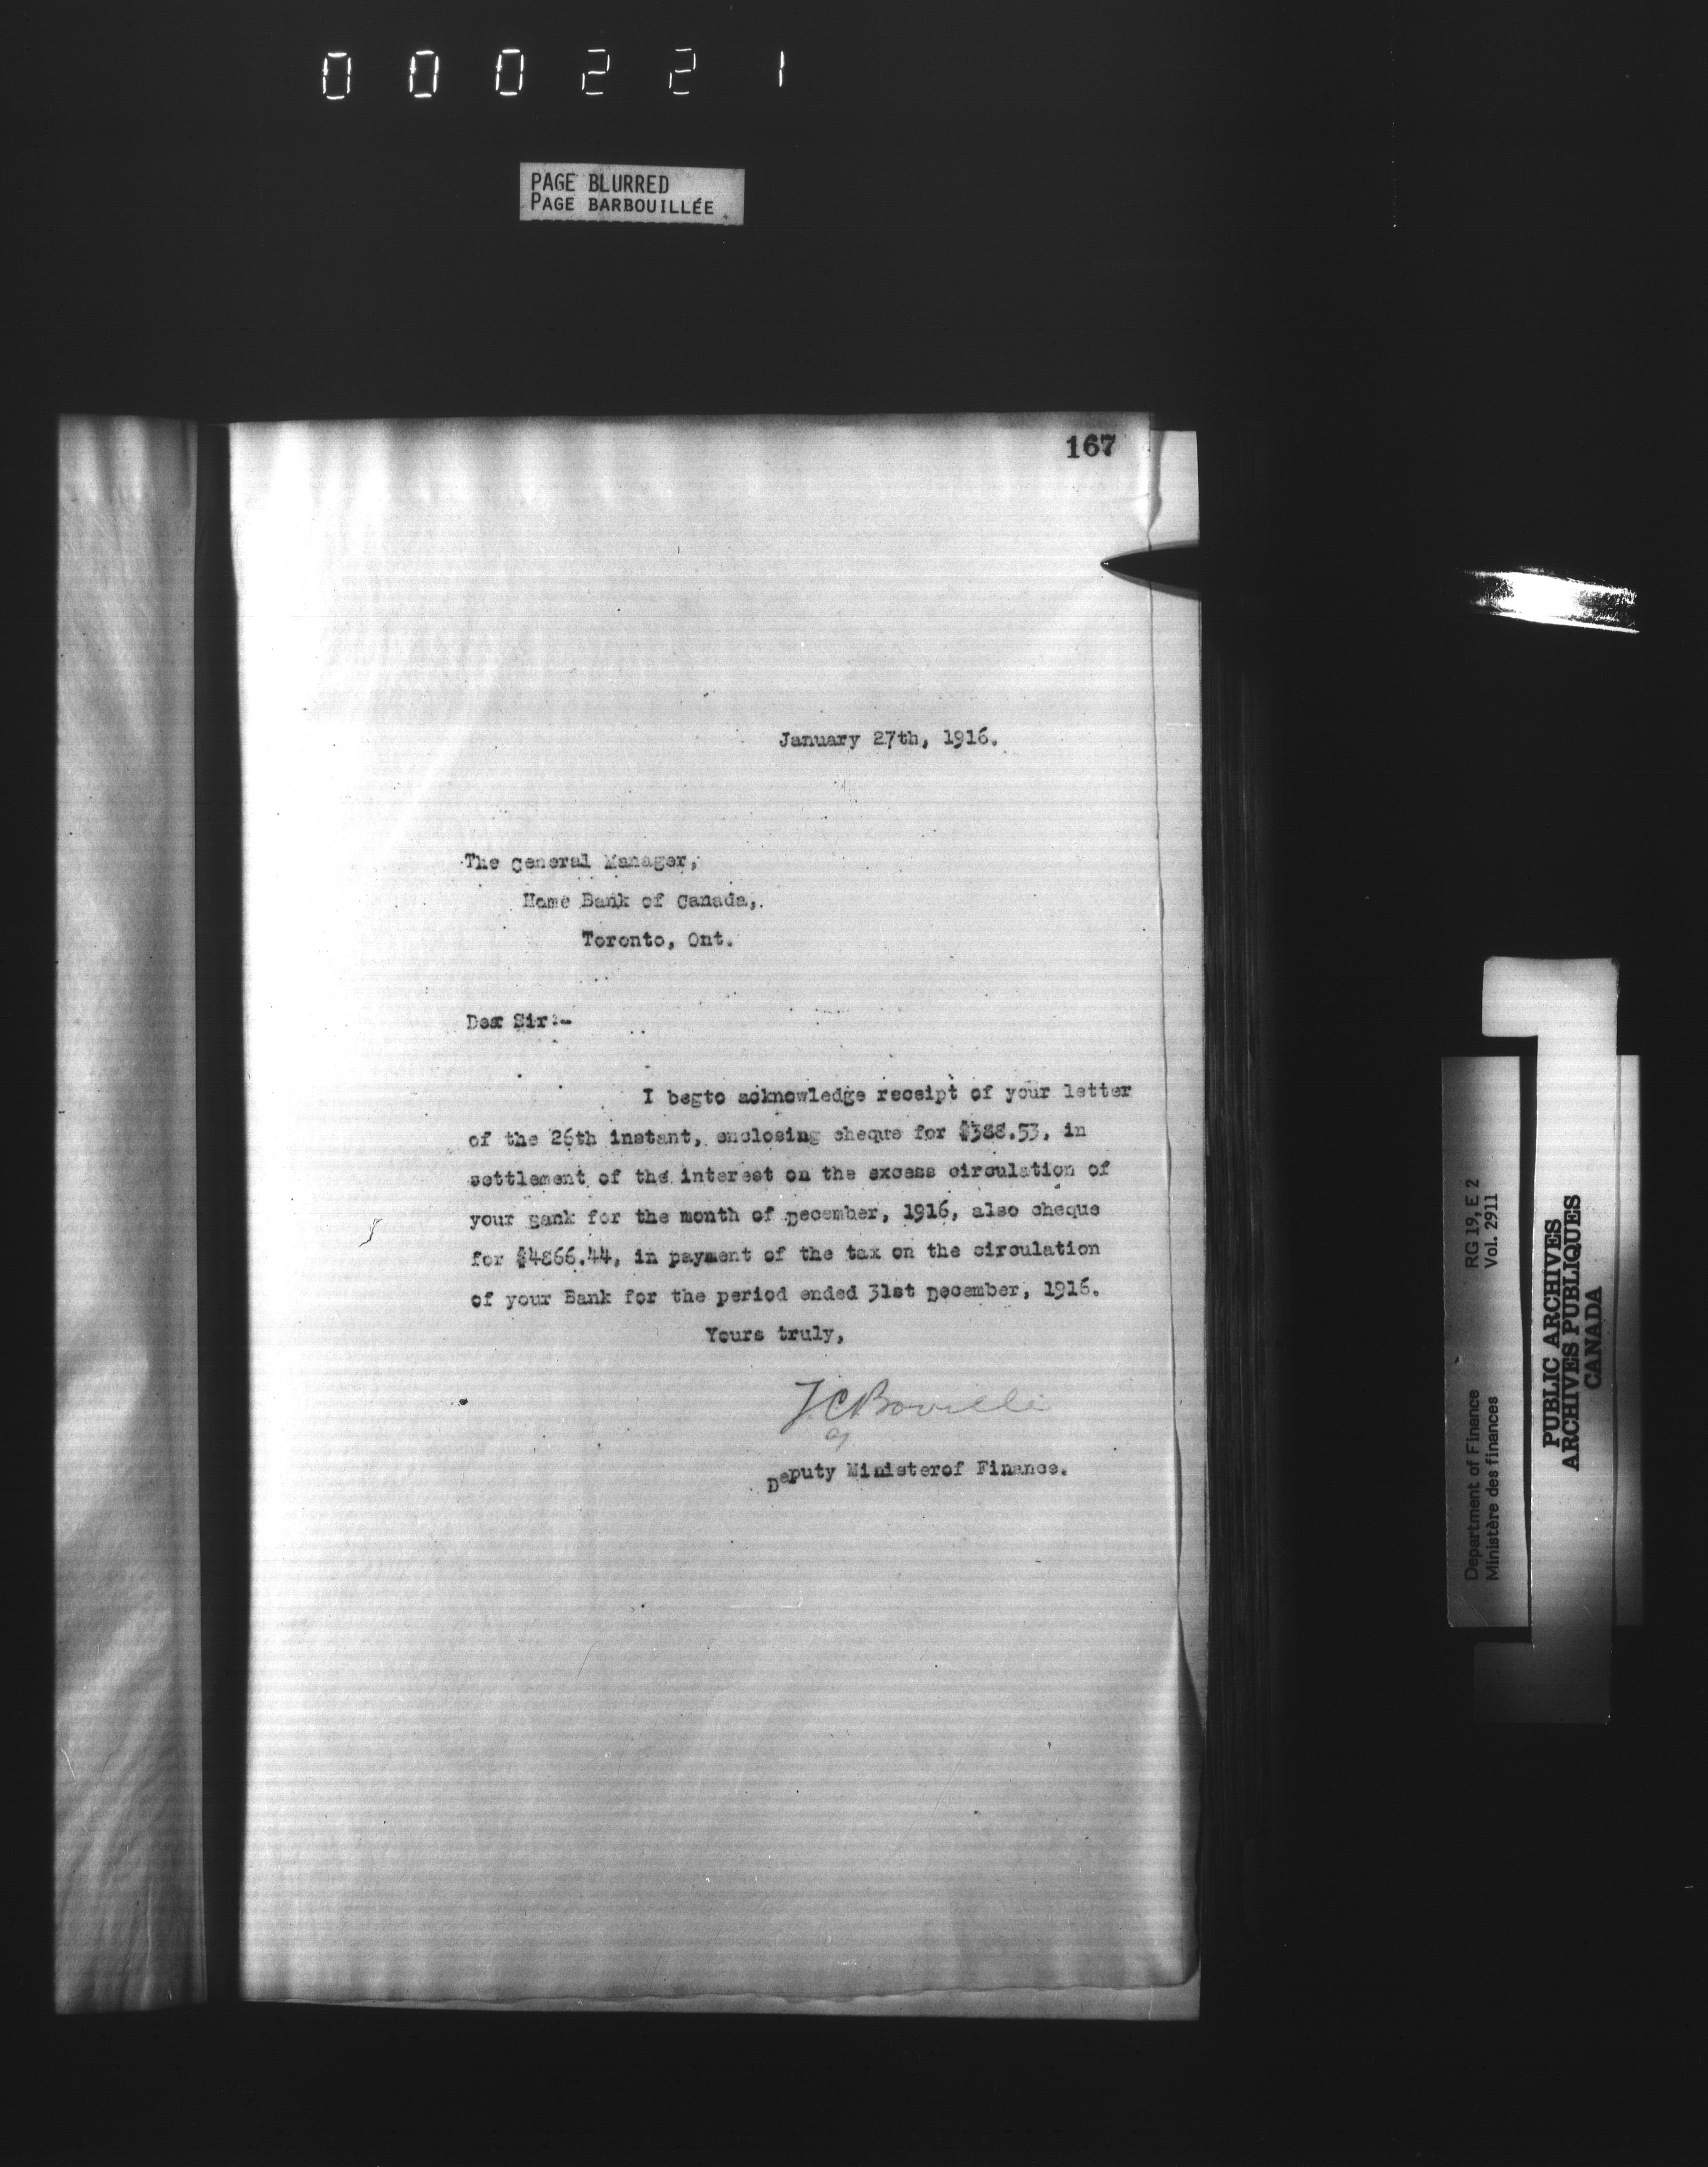 000221
PAGE BLURRED
PAGE BARBOUILLÉE
167
January 27th, 1916.
The General Manager,
Home Bank of Canada,
Toronto, Ont.
Dear Sir:-
I begto acknowledge receipt of your letter
of the 26th instant, enclosing cheque for $388.53, in
settlement of the interest on the excess circulation of
your Bank for the month of December, 1916, also cheque
for $4866.44, in payment of the tax on the circulation
of your Bank for the period ended 31st December, 1916.
Yours truly,
T C Boville
Deputy Ministerof Finance.
Department of Finance RG 19, E 2
Ministère des finances Vol. 2911
PUBLIC ARCHIVES
ARCHIVES PUBLIQUES
CANADA